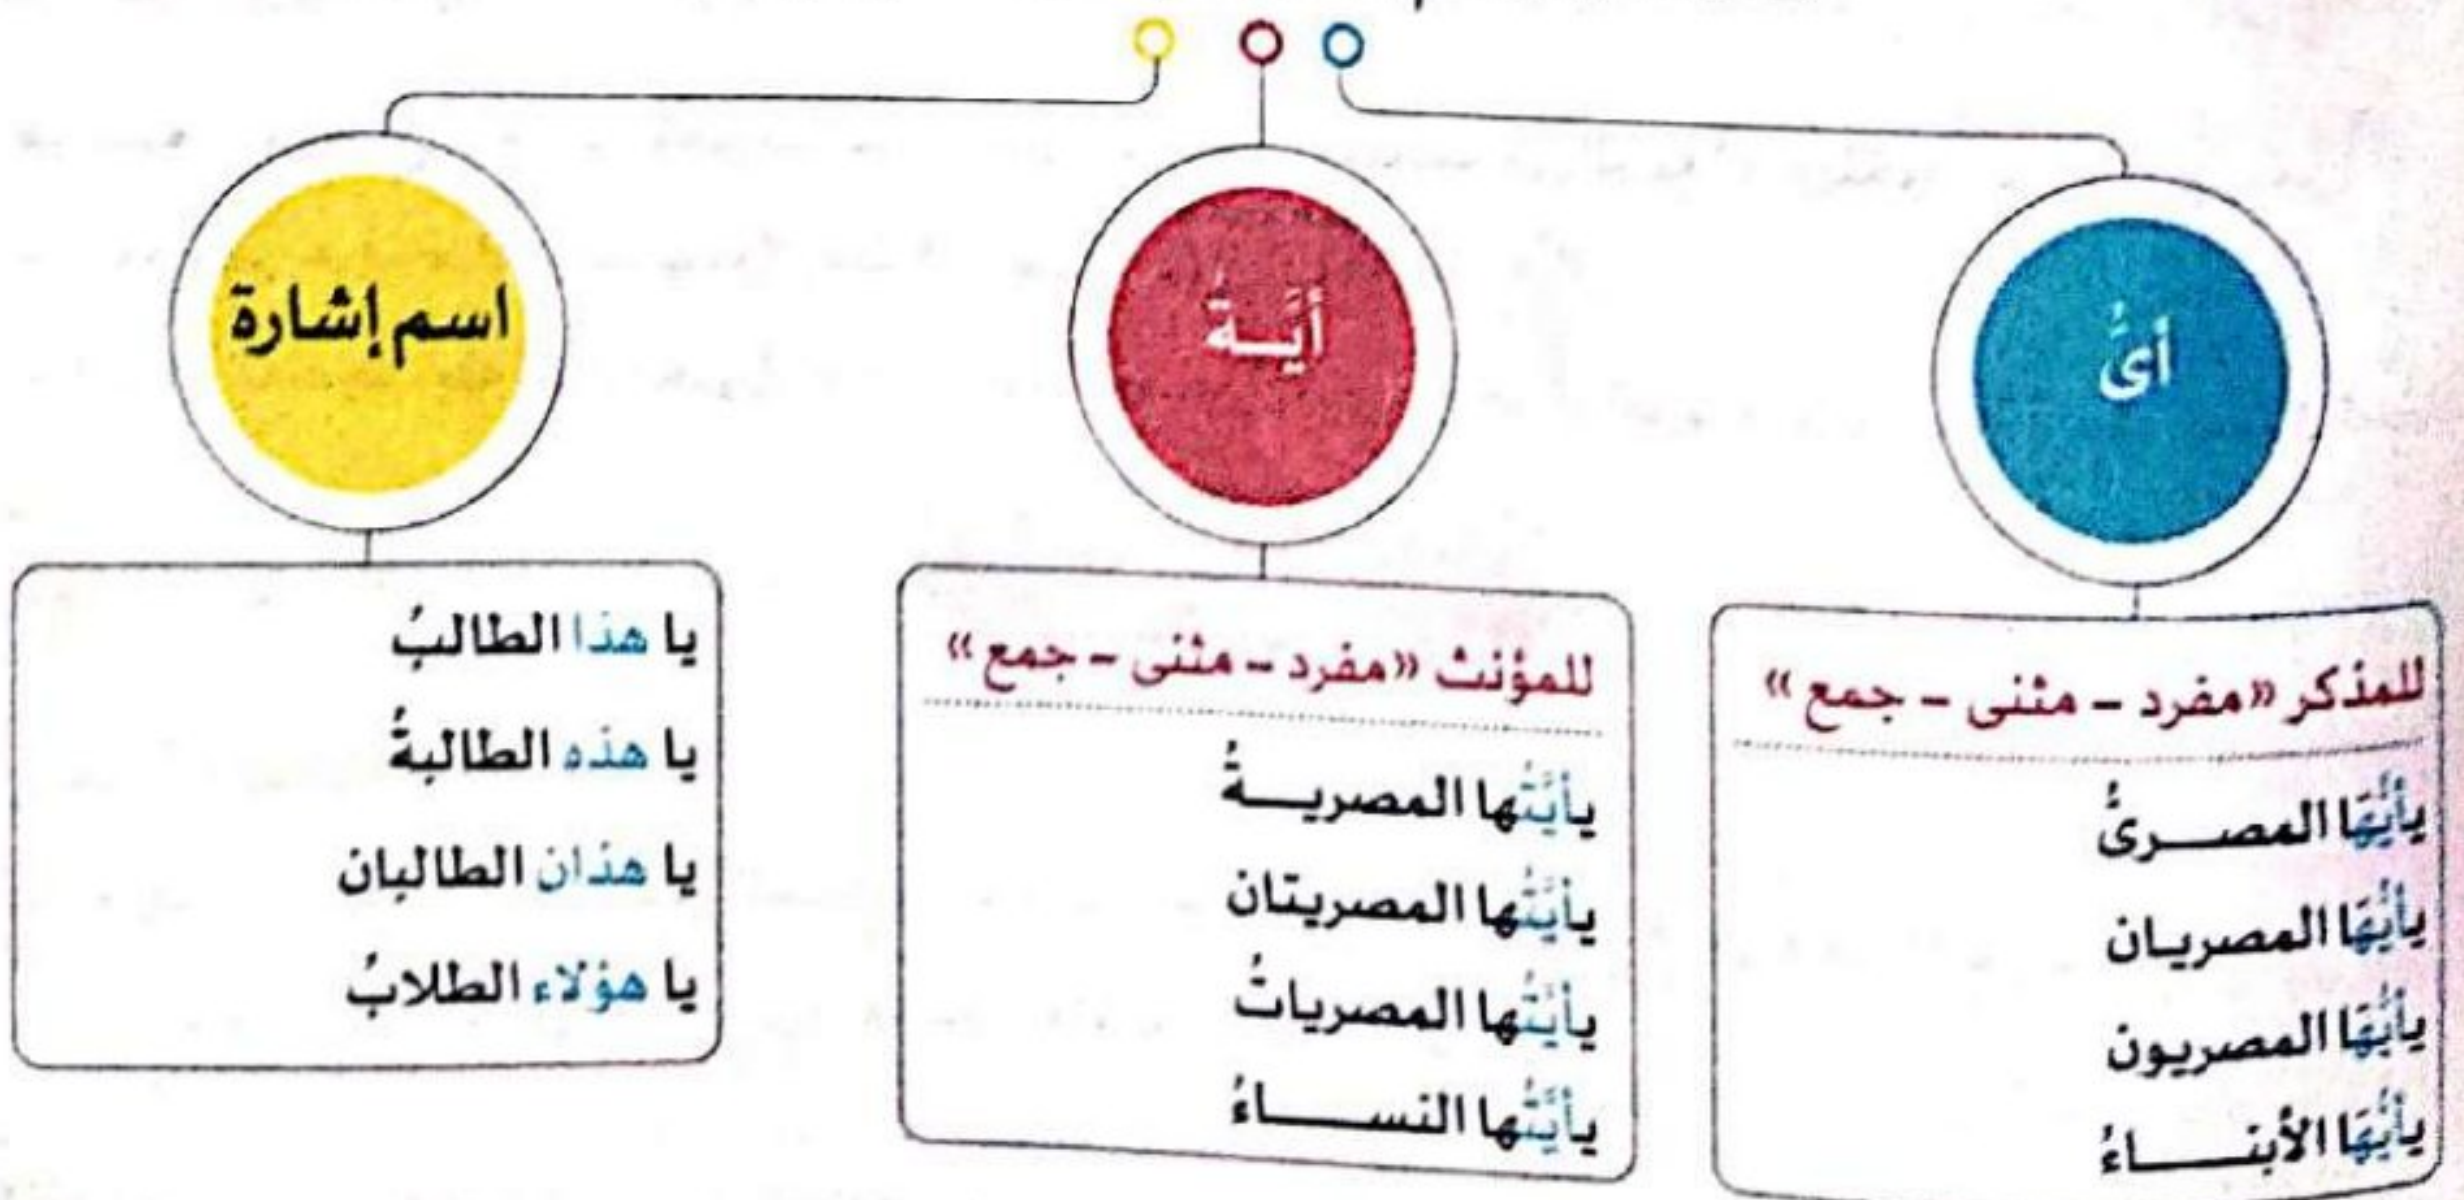 أىُّ
للمذكر «مفرد – مثنى – جمع»
يأيُّهَا المصـــرىُّ
يأيُّهَا المصريـان
يأيُّهَا المصريون
يأيُّهَا الأبنـــــاءُ
أيَّـةُ
للمؤنث «مفرد – مثنى – جمع»
يأيَّتُها المصريـــةُ
يأيَّتُها المصريتان
يأيَّتُها المصرياتُ
يأيَّتُها النســـــاءُ
اسم إشارة
يا هذا الطالبُ
يا هذه الطالبةُ
يا هذان الطالبان
يا هؤلاء الطلابُ